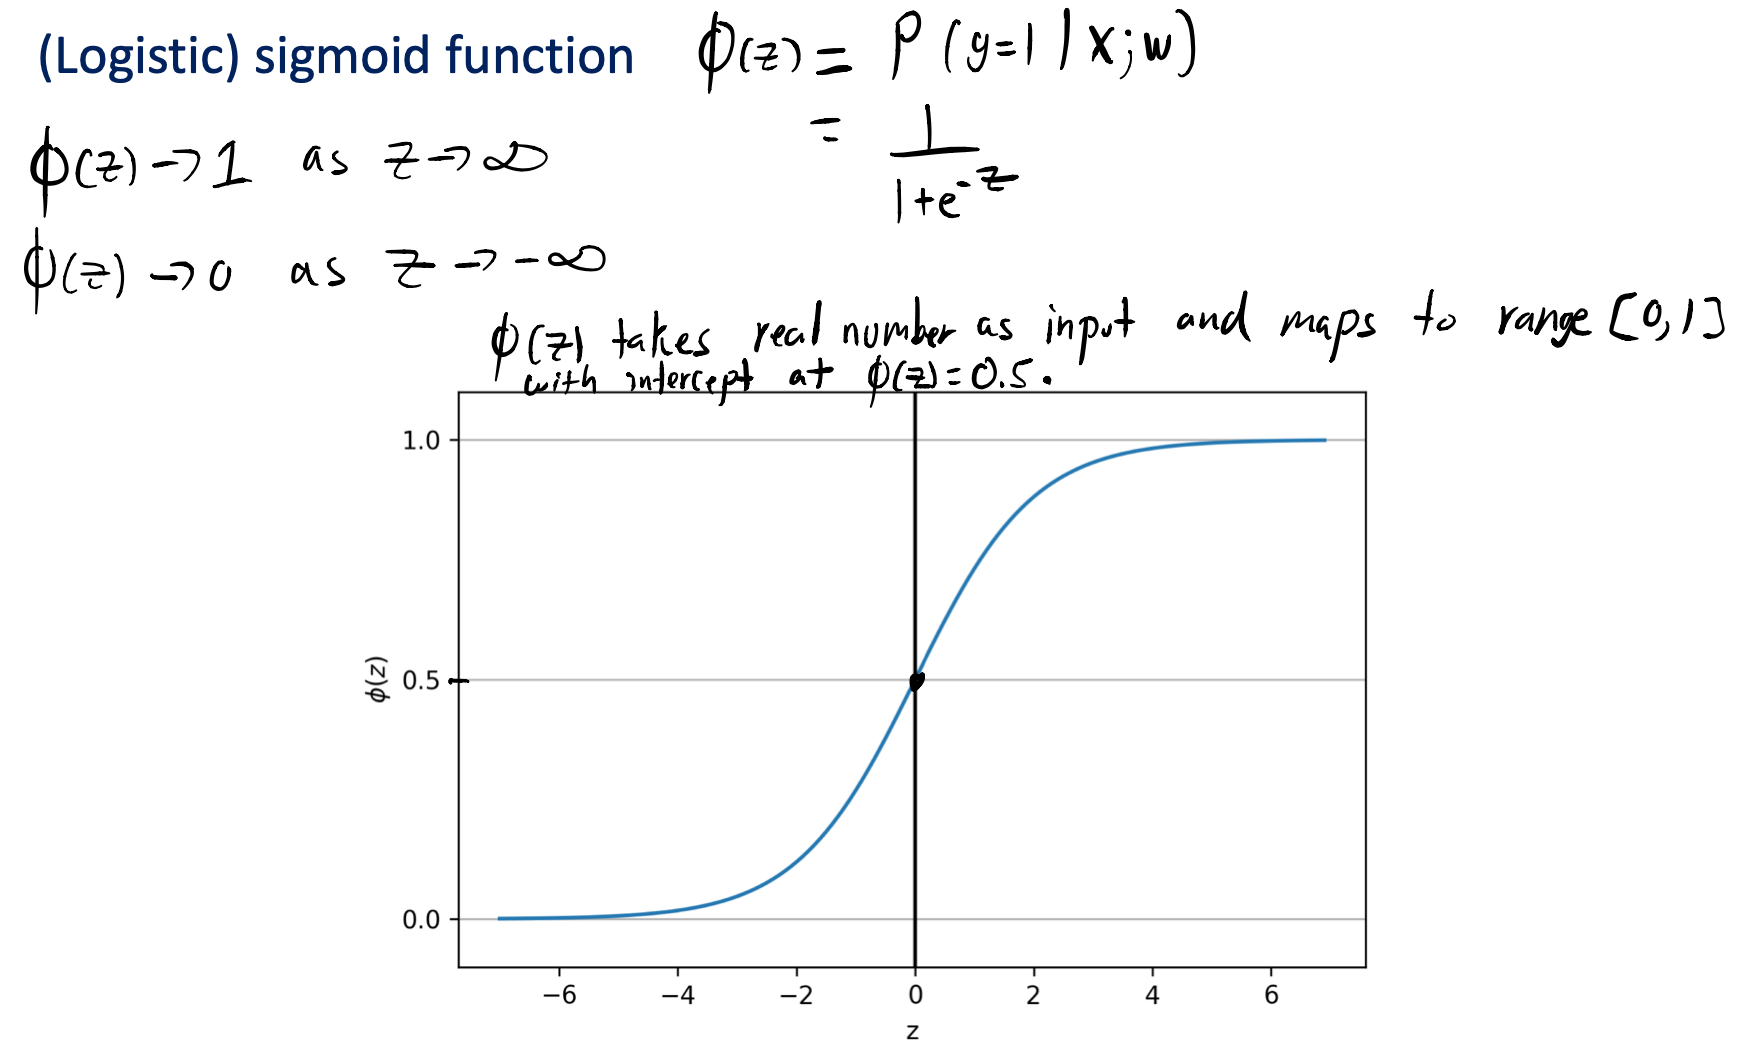 (Logistic) sigmoid function ϕ(z) = P(y=1 | x; w)
= 1
1+e^-z
ϕ(z) → 1 as z → ∞
ϕ(z) → 0 as z → -∞
ϕ(z) takes real number as input and maps to range [0,1]
with intercept at ϕ(z)=0.5.
1.0
ϕ(z)
0.5
0.0
−6 −4 −2 0 2 4 6
z